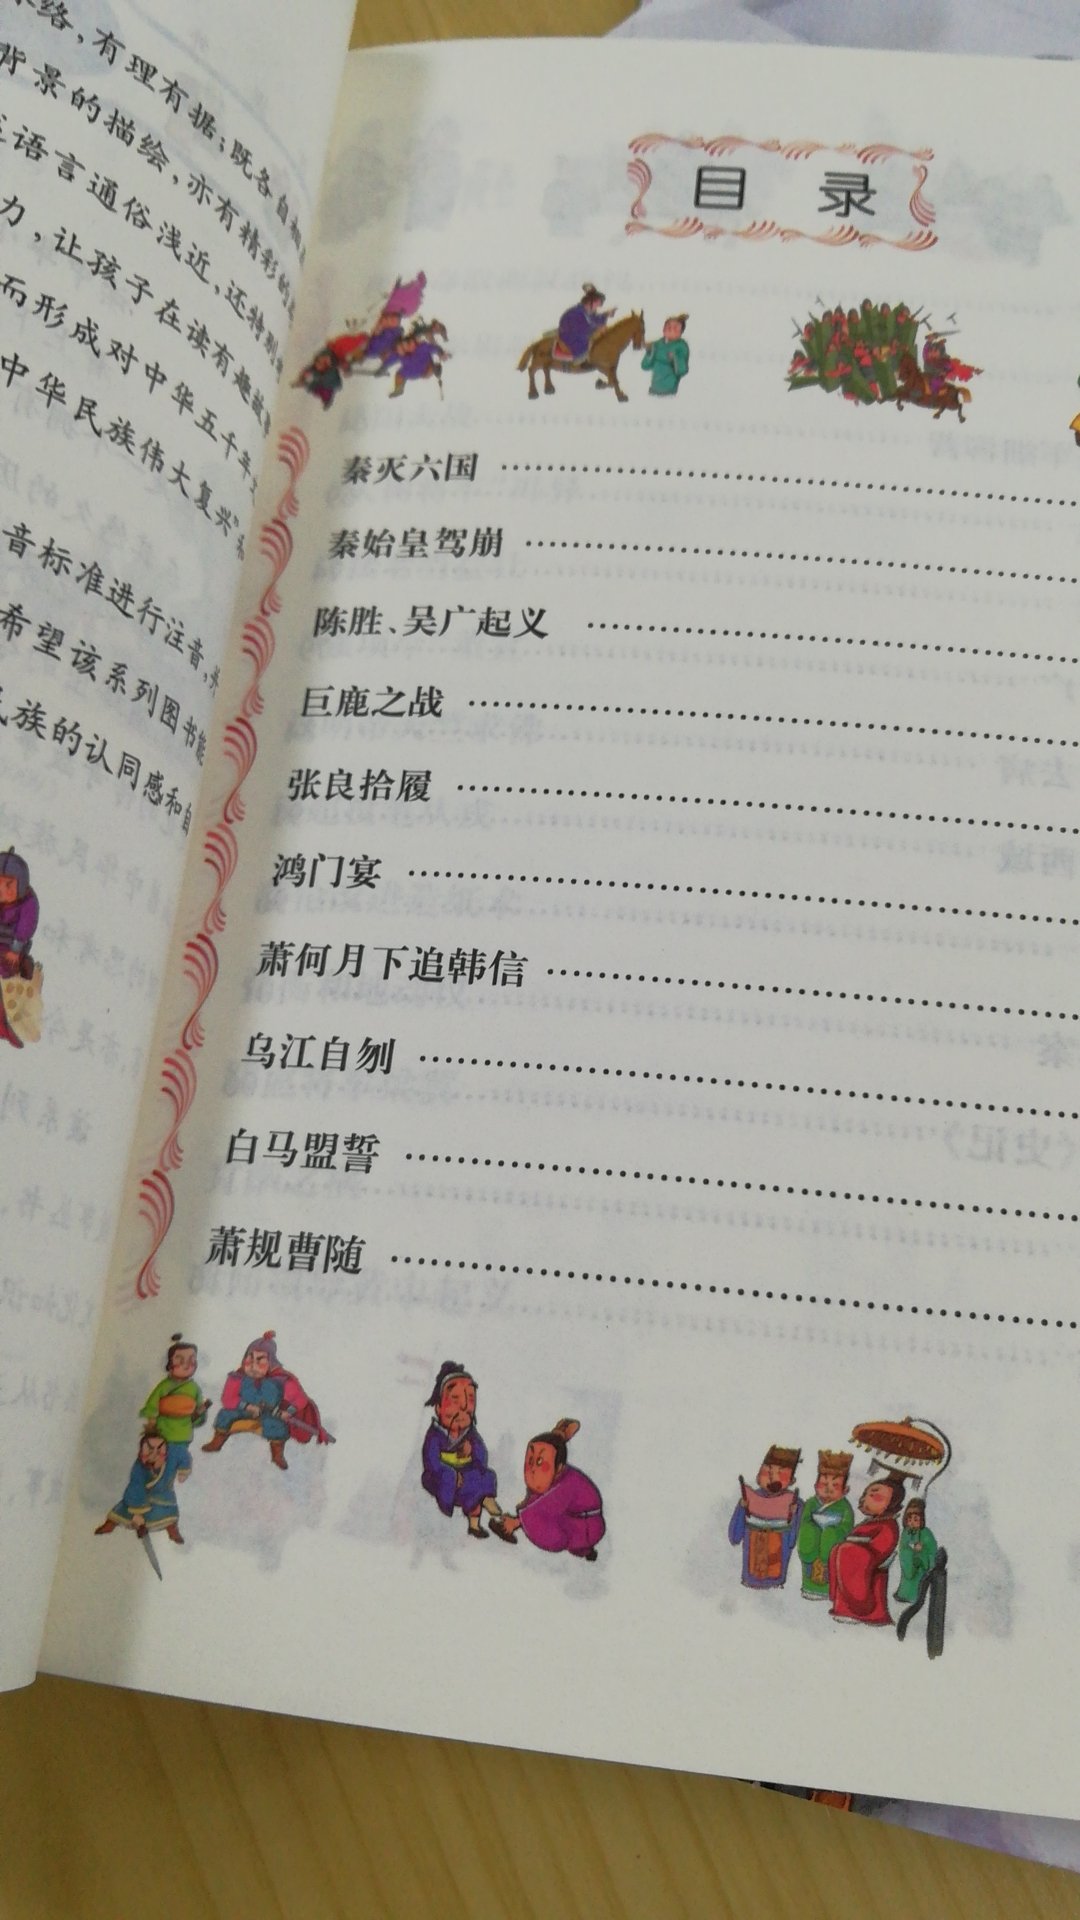 络，有理有据；既各自
背景的描绘，亦有精彩的
语言通俗浅近，还特别
力，让孩子在读有趣故
而形成对中华五千年
中华民族伟大复兴
音标准进行注音，
希望该系列图书能
民族的认同感和自
目 录
秦灭六国
秦始皇驾崩
陈胜、吴广起义
巨鹿之战
张良拾履
鸿门宴
萧何月下追韩信
乌江自刎
白马盟誓
萧规曹随